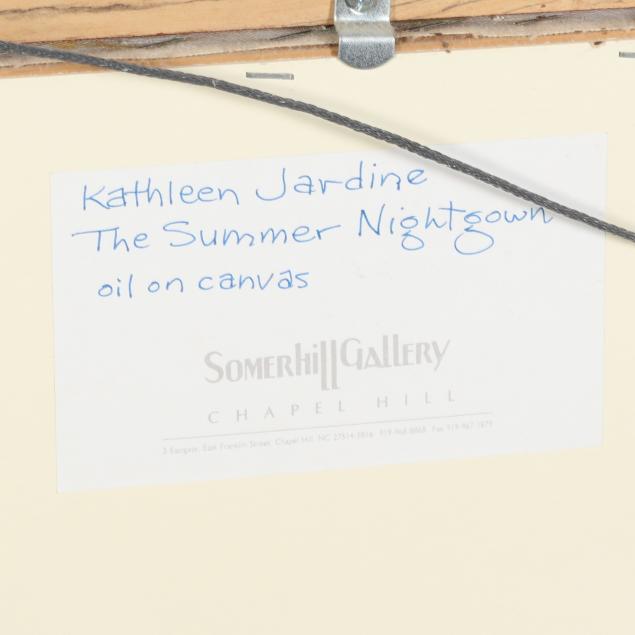 Kathleen Jardine
The Summer Nightgown
oil on canvas
Somerhill Gallery
CHAPEL HILL
3 Eastgate, East Franklin Street, Chapel Hill, NC 27514-5816 919-968-8868 Fax 919-967-1879